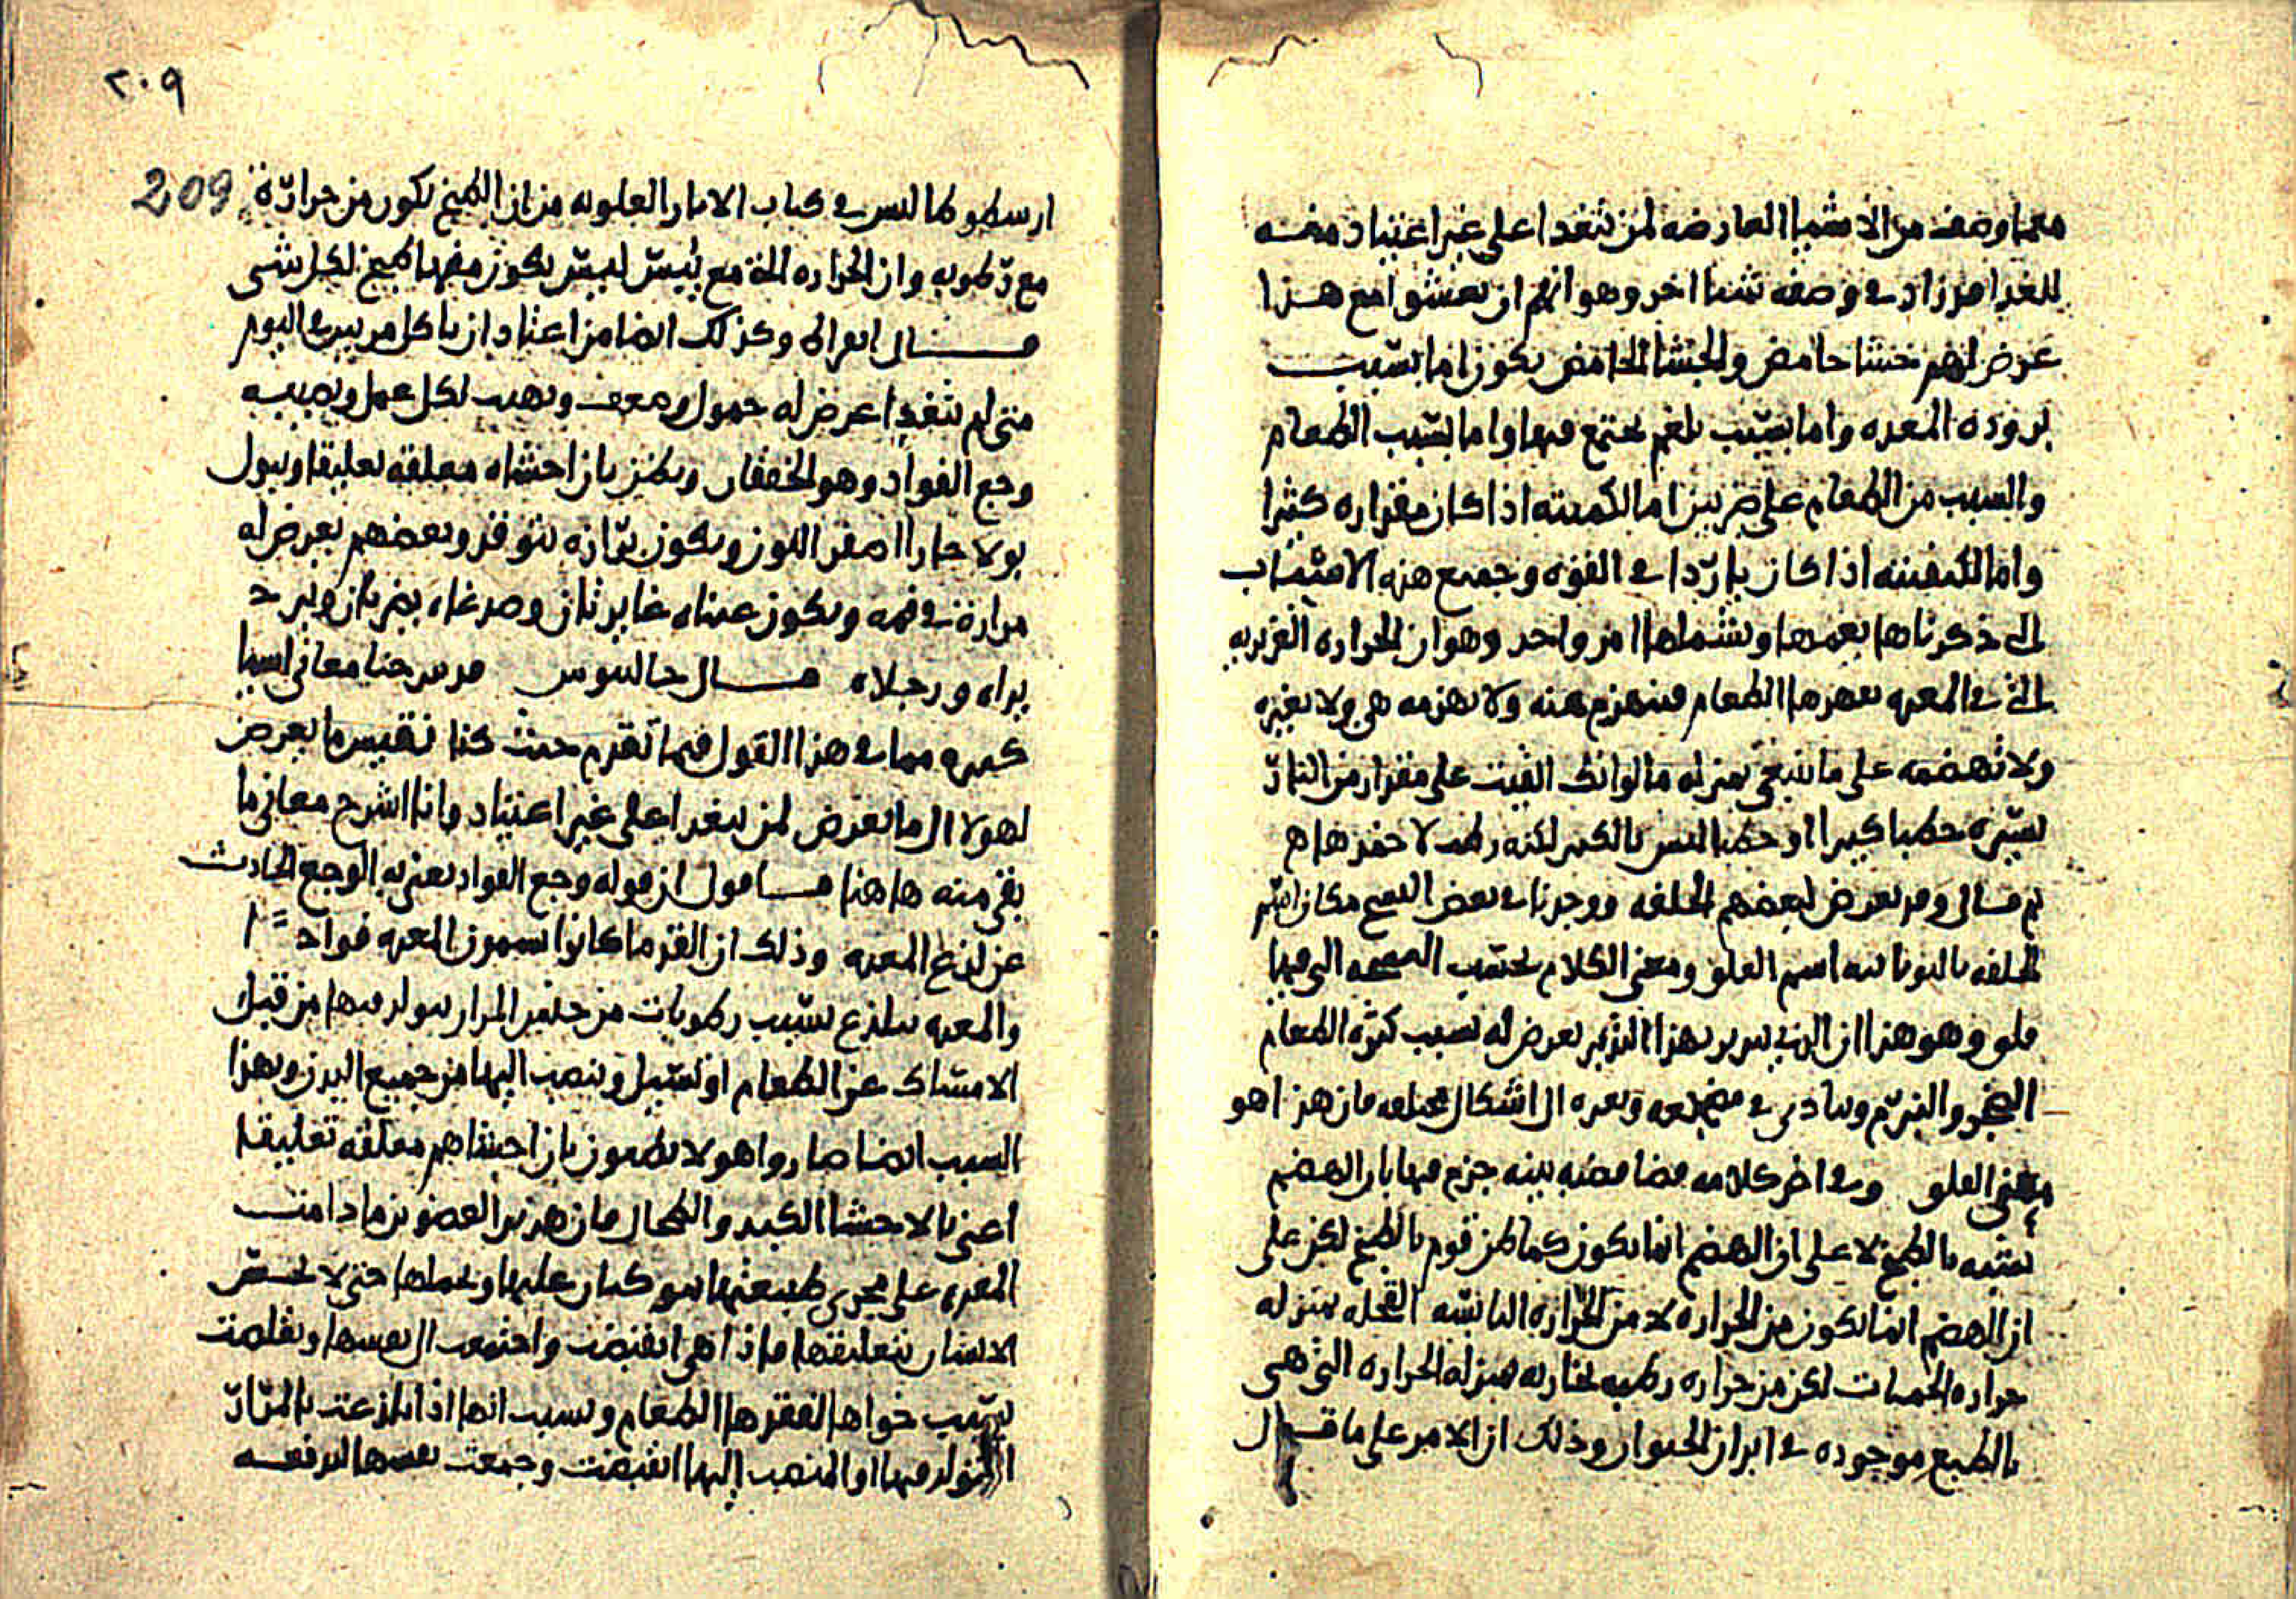 مما وصف من الاشيا العارضه لمن تغدا على غير اعتياد منه
للغدا من زاد في وصفه شيا اخر وهو انهم ان تعشوا مع هذا
عرض لهم جشا حامض والجشا الحامض يكون اما بسبب
برودة المعده واما بسبب بلغم يجتمع فيها واما بسبب الطعام
والسبب من الطعام على ضربين اما لكميته اذا كان مقداره كثيرا
واما لكيفيته اذا كان باردا في القوه وجميع هذه الاسباب
التي ذكرناها يعمها ويشملها امر واحد وهو ان الحراره الغريزيه
التي في المعده الطعام منه ولا هي ولا تغيره
ولا تهضمه على ما ينبغي بمنزله ما لو انك القيت على مقدار من النار
يسيره حطبا كبيرا او حطبا ليس بالكبير لكنه رطب لا
ثم قال وقد يعرض لبعضهم الخلفه ووجدنا في بعض النسخ مكان اسم
الخلفه باليونانيه اسم العلو ومعنى الكلام بحسب النسخه التي فيها
علو وهو هذا ان الذي يدبر بهذا التدبير يعرض له بسبب كثره الطعام
وفي اخر كلامه قضا قضيه بينه جزم فيها بان الهضم
شبيه بالطبخ لا على ان الهضم انما يكون كما ظن قوم بالطبخ لكن على
ان الهضم انما يكون من الحراره لا من الحراره اليابسه القحله بمنزله
حراره الحميات لكن من حراره رطبه بخاريه بمنزله الحراره التي هي
بالطبع موجوده في ابدان الحيوان وذلك ان الامر على ما قال
٢٠٩
209
ارسطوطاليس في كتاب الاثار العلويه من ان الطبخ يكون من حرارة
مع رطوبه وان الحراره التي مع يبس ليس يكون منها طبخ لكل شي
قال ابقراط وكذلك ايضا من اعتاد ان ياكل مرتين في اليوم
متى لم يتغدا عرض له خمول وضعف وتهيب لكل عمل ويصيبه
وجع الفواد وهو الخفقان ويظن بان احشاه معلقه تعليقا ويبول
بولا حارا اصفر اللون ويكون برازه يتوقد وبعضهم يعرض له
مرارة في فمه ويكون عيناه غايرتان وصدغاه يضربان ويبرد
يداه ورجلاه قال جالينوس قد شرحنا معاني اشيا
كثيره مما في هذا القول فيما تقدم حيث كنا نقيس ما يعرض
لهولا الى ما يعرض لمن يتغدا على غير اعتياد وانا اشرح معاني ما
بقي منه هاهنا فاقول ان قوله وجع الفواد يعني به الوجع الحادث
عن لذع المعده وذلك ان القدما كانوا يسمون المعده فوادا
والمعده تلذع بسبب رطوبات من جنس المرار يتولد فيها من قبل
الامساك عن الطعام او تسيل وينصب اليها من جميع البدن وبهذا
السبب ايضا صاروا هولا يظنون بان احشاهم معلقه تعليقا
اعني بالاحشا الكبد والطحال فان هذين العضوين ما دامت
المعده على مجرى طبيعتها عليها وتحملها حتى لا يحس
الانسان بتعليقها فاذا هي انقبضت واجتمعت الى نفسها وتقلصت
بسبب خواها لفقدها الطعام وبسبب انها اذا تلذعت بالمرار
المتولد فيها او المنصب اليها انقبضت وجمعت نفسها لتدفعه